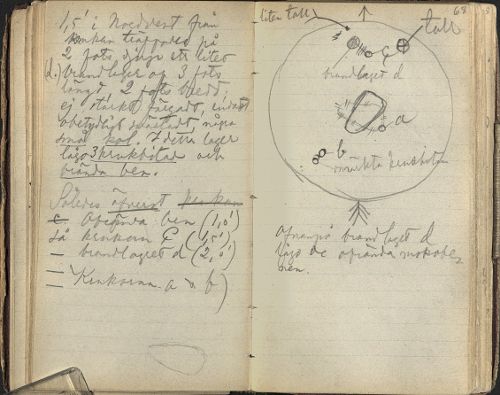 1,5' i Nordvest från
krukan träffades på
2 fots djup ett litet
d.) brandlager af 3 fots
långt 2 fots bredd,
ej starkt färgadt, endast
obetydligt svartadt, några
små kol. I detta lager
lågo 3 krukbitar och
brända ben.
Således öfverst
obrända ben (1,0')
så krukan C (1,5')
— brandlagret d (2,0')
— Krukorna a & b)
68
liten tall
tall
C
brandlaget d
a
b
omärkta krukbitar
Ofvanpå brandlaget d
lågo de obrända
nen.